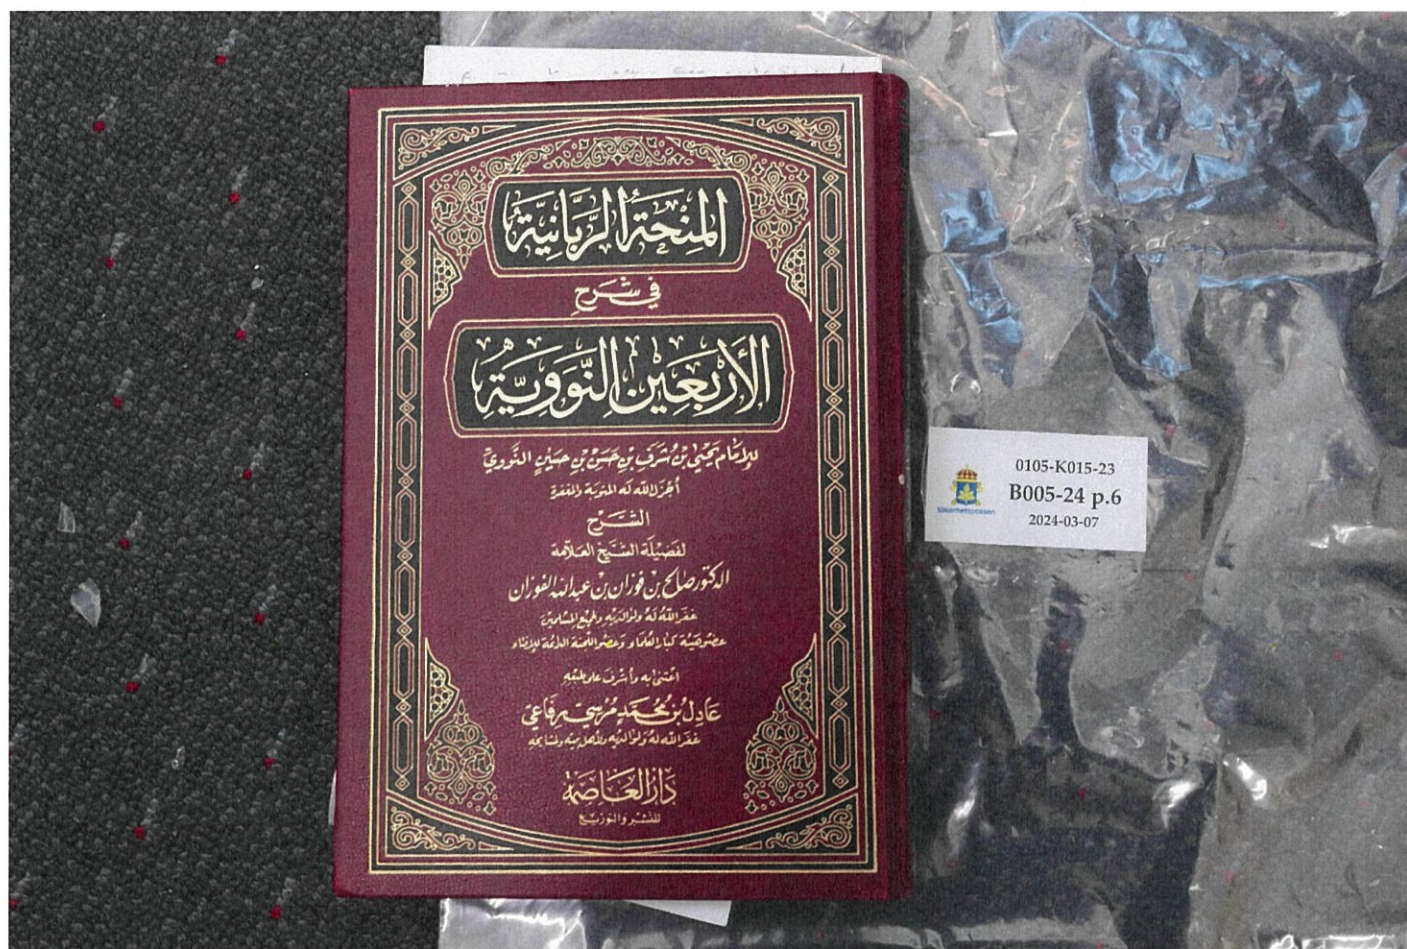 المِنْحَةُ الرَّبَّانِيَّةُ
فِي شَرْحِ
الأَرْبَعِينَ النَّوَوِيَّةِ
للإمَام يَحْيَى بْن شَرَف بْنِ حَسَن بْنِ حسَين النَّوَوِيِّ
أَجْزَلَ اللّه لَه المثوبة والمغفرة
الشَّرْح
لفَضِيلَة الشَّيْخ العَلّامة
الدكتور صَالح بْن فوزان بْن عبد الله الفوزان
غفَر اللّه لَهُ ولوَالدَيْهِ ولجَميْع المُسْلمين
عضو هَيئة كبَار العُلمَاء وَعضو اللّجنة الدائمَة للإفتَاء
اعْتَنى به وأشرفَ عَلى طبْعِهِ
عَادِل بْن مُحَمَّد مُرسِي رفَاعِي
غفَر اللّه لَهُ وَلوَالديهِ ولأهل بيته ولمشَايخهِ
دَارُ العَاصِمَة
للنَشْر وَالتوزيْع
0105-K015-23
B005-24 p.6
2024-03-07
Säkerhetspolisen